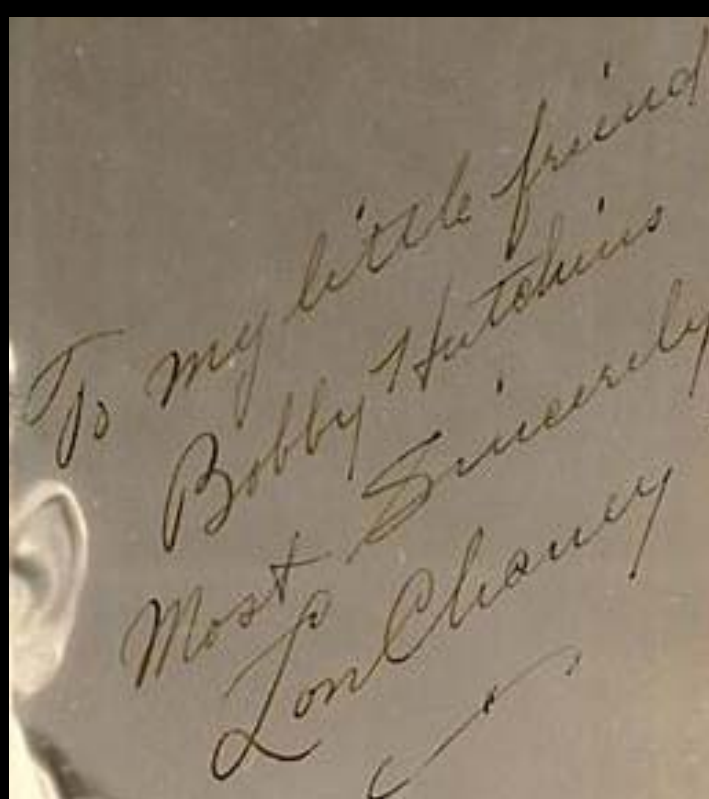 To my little friend
Bobby Hutchins
Most Sincerely
Lon Chaney